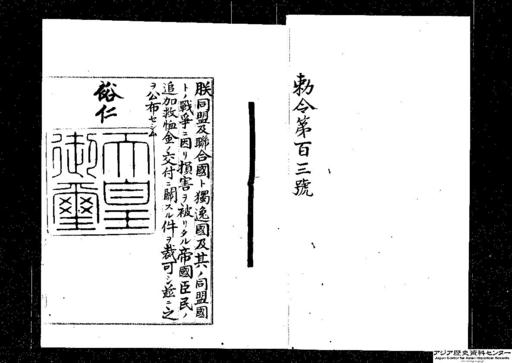 勅令第百三號
朕同盟及聯合國ト獨逸國及其ノ同盟國
トノ戰爭ニ因リ損害ヲ被リタル帝國臣民ノ
追加救恤金ノ交付ニ關スル件ヲ裁可シ茲ニ之
ヲ公布セシム
裕仁
天皇
御璽
アジア歴史資料センター
Japan Center for Asian Historical Records